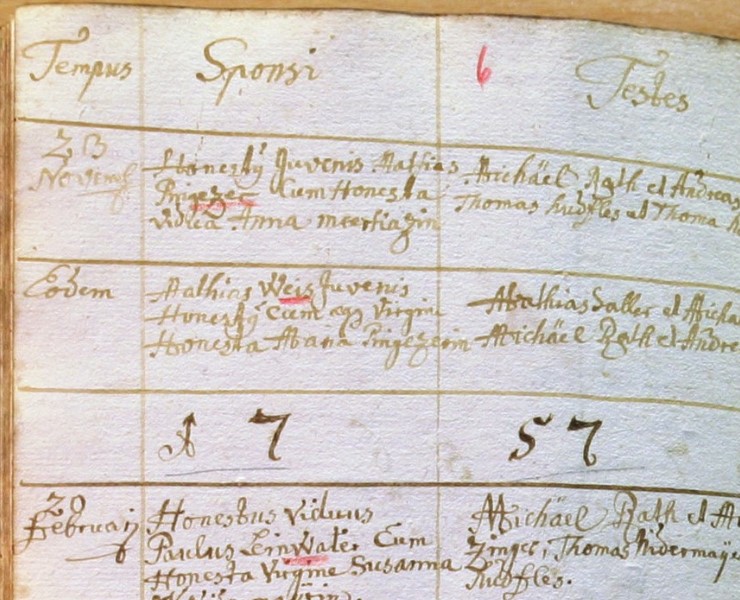 Tempus Sponsi 6 Testes
23 Novemb
Honesty Juvenis Mathias
cum Honesta
Vidua Anna
Michäel Rath et Andreas
Thomas et Thoma
Eodem
Mathias Weis Juvenis
Honesty cum Virgine
Honesta Maria Pingezerin
Mathias Saller et Micha
Michäel Rath et Andre
1 7 5 7
20
Februarij
Honestus Viduus
Paulus Einwaler Cum
Honesta Virgine Susanna
Michäel Rath et
Zinger, Thomas Nidermaÿe